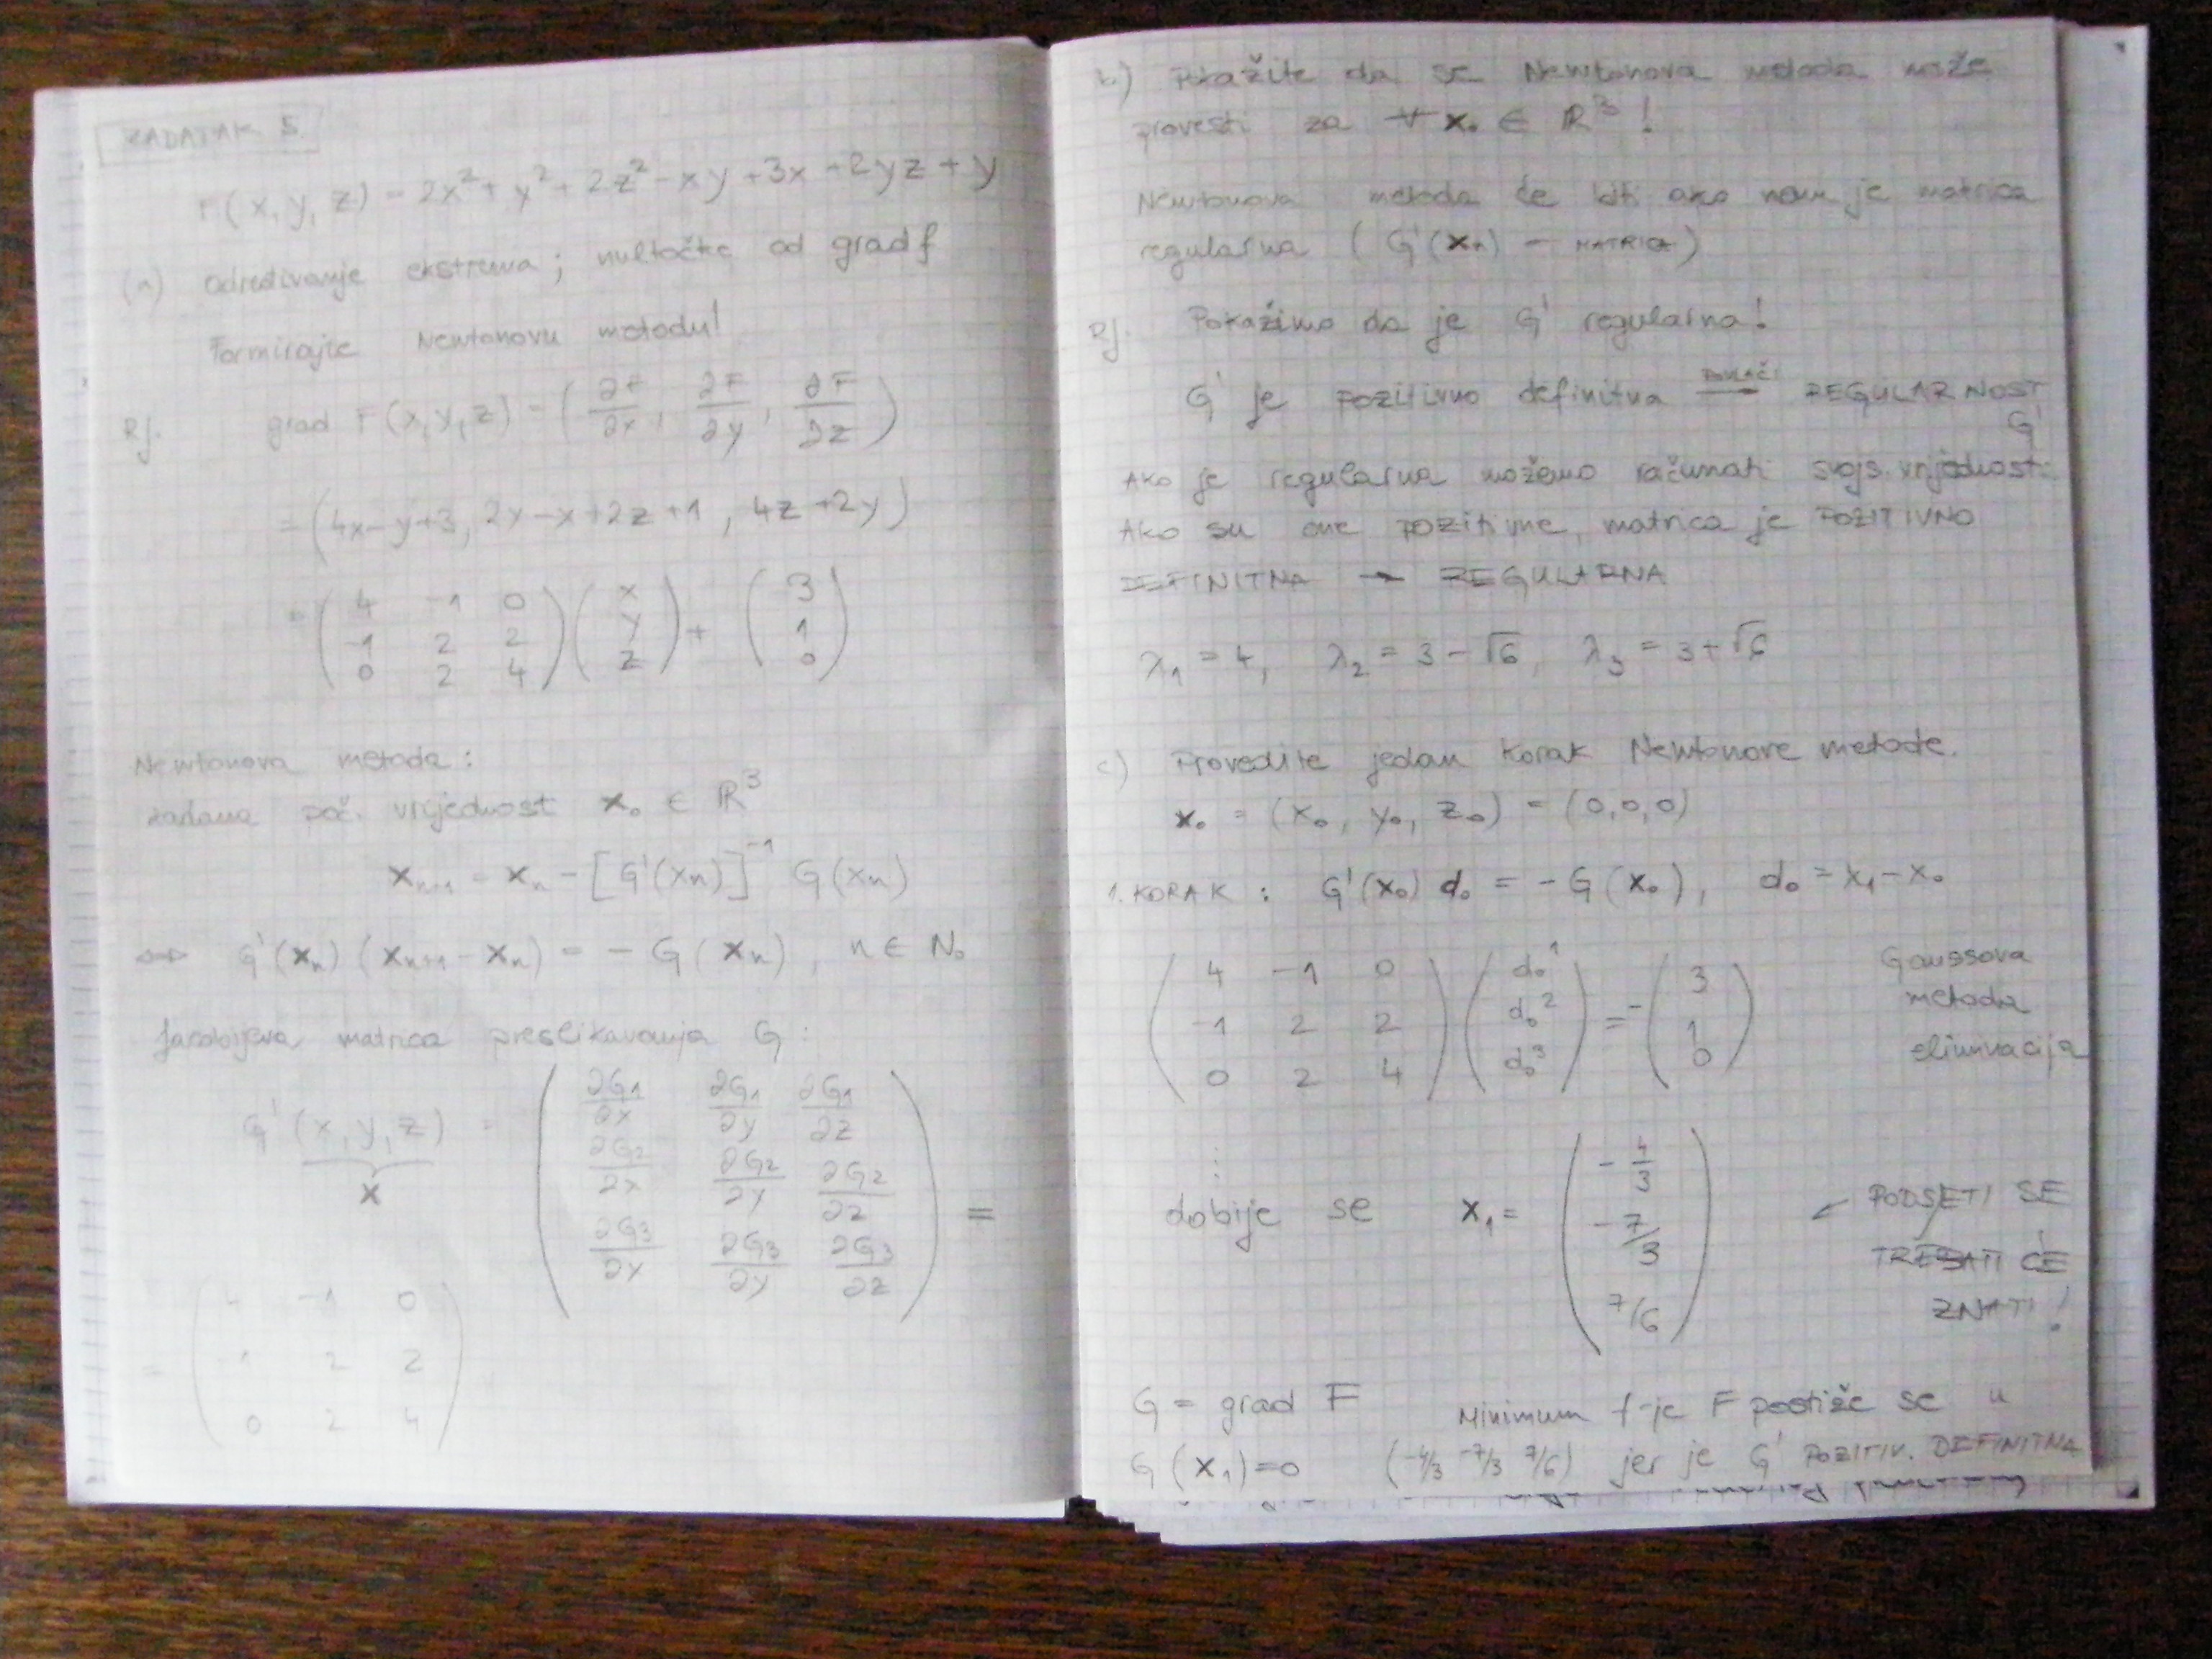 ZADATAK 5.
F(x, y, z) = 2x² + y² + 2z² - xy + 3x + 2yz + y
(a) Određivanje ekstrema; nultočke od grad f
Formirajte Newtonovu metodu!
Rj. grad F(x, y, z) = ( ∂F/∂x , ∂F/∂y , ∂F/∂z )
= (4x-y+3, 2y-x+2z+1, 4z+2y)
= ( 4 -1 0 ) ( x ) + ( 3 )
( -1 2 2 ) ( y ) ( 1 )
( 0 2 4 ) ( z ) ( 0 )
Newtonova metoda:
zadana poč. vrijednost x₀ ∈ ℝ³
xₙ₊₁ = xₙ - [G'(xₙ)]⁻¹ G(xₙ)
⟺ G'(xₙ) (xₙ₊₁ - xₙ) = - G(xₙ), n ∈ N₀
Jacobijeva matrica preslikavanja G:
G'(x, y, z) = ( ∂G₁/∂x ∂G₁/∂y ∂G₁/∂z )
( ∂G₂/∂x ∂G₂/∂y ∂G₂/∂z ) =
x
( ∂G₃/∂x ∂G₃/∂y ∂G₃/∂z )
( 4 -1 0 )
= ( -1 2 2 )
( 0 2 4 )
b) Pokažite da se Newtonova metoda može
provesti za ∀ x₀ ∈ ℝ³ !
Newtonova metoda će biti ako nam je matrica
regularna ( G'(xₙ) - MATRICA )
Rj. Pokažimo da je G' regularna!
G' je pozitivno definitna POVLAČI → REGULARNOST
G'
Ako je regularna možemo računati svojs. vrijednosti
Ako su one pozitivne, matrica je POZITIVNO
DEFINITNA → REGULARNA
λ₁ = 4, λ₂ = 3 - √6, λ₃ = 3 + √6
c) Provedite jedan korak Newtonove metode.
x₀ = (x₀, y₀, z₀) = (0,0,0)
1. KORAK : G'(x₀) d₀ = - G(x₀), d₀ = x₁ - x₀
( 4 -1 0 ) ( d₀¹ ) ( 3 ) Gaussova
( -1 2 2 ) ( d₀² ) = - ( 1 ) metoda
( 0 2 4 ) ( d₀³ ) ( 0 ) eliminacija
⋮
dobije se x₁ = ( -4/3 )
( -7/3 )
( 7/6 )
← PODSJETI SE
TREBATI ĆE
ZNATI !
G = grad F Minimum f-je F postiže se u
G(x₁)=0 (-4/3 -7/3 7/6) jer je G' POZITIV. DEFINITNA